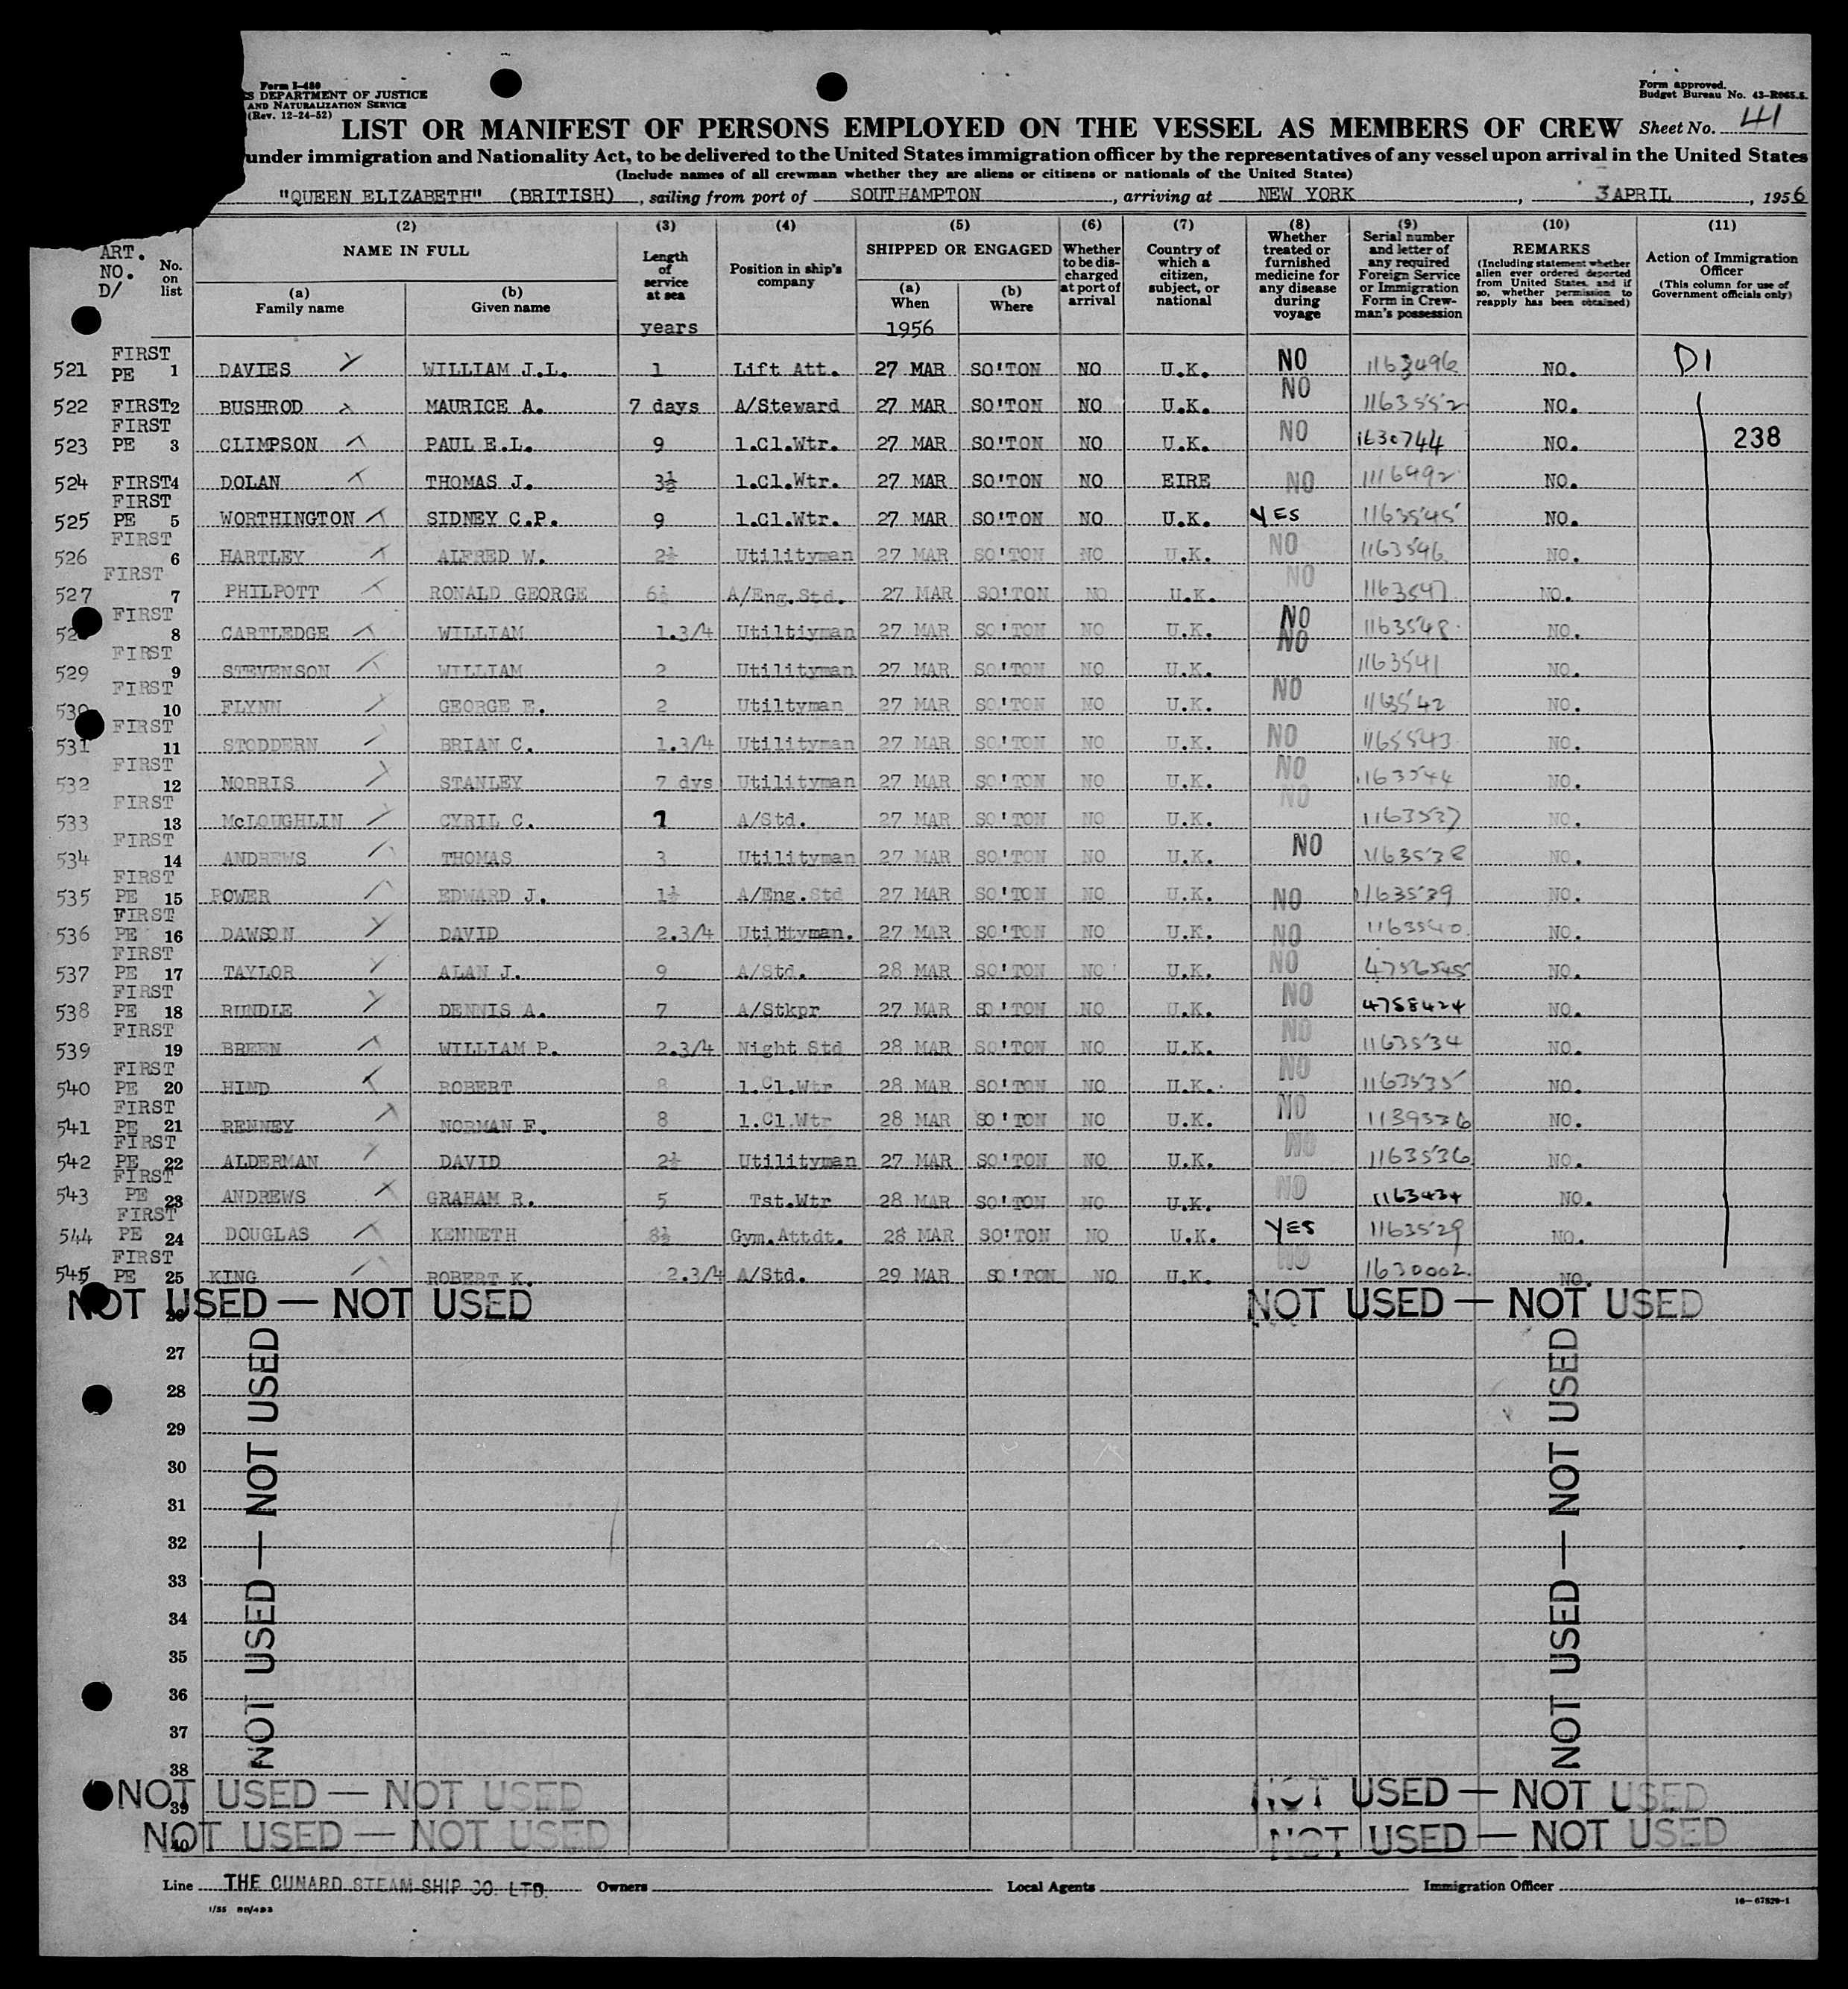 Form I-480
S DEPARTMENT OF JUSTICE
AND NATURALIZATION SERVICE
(Rev. 12-24-52)
Form approved.
Budget Bureau No. 43-R065.5.
LIST OR MANIFEST OF PERSONS EMPLOYED ON THE VESSEL AS MEMBERS OF CREW Sheet No. 41
under immigration and Nationality Act, to be delivered to the United States immigration officer by the representatives of any vessel upon arrival in the United States
(Include names of all crewman whether they are aliens or citizens or nationals of the United States)
"QUEEN ELIZABETH" (BRITISH), sailing from port of SOUTHAMPTON, arriving at NEW YORK, 3 APRIL, 1956
ART. NO. D/
No. on list
(2) NAME IN FULL
(a) Family name
(b) Given name
(3) Length of service at sea
years
(4) Position in ship's company
(5) SHIPPED OR ENGAGED
(a) When
1956
(b) Where
(6) Whether to be discharged at port of arrival
(7) Country of which a citizen, subject, or national
(8) Whether treated or furnished medicine for any disease during voyage
(9) Serial number and letter of any required Foreign Service or Immigration Form in Crewman's possession
(10) REMARKS
(Including statement whether alien ever ordered deported from United States, and if so, whether permission to reapply has been obtained)
(11) Action of Immigration Officer
(This column for use of Government officials only)
521 FIRST PE 1 DAVIES WILLIAM J.L. 1 Lift Att. 27 MAR SO'TON NO U.K. NO 1163496 NO. D1
522 FIRST 2 BUSHROD MAURICE A. 7 days A/Steward 27 MAR SO'TON NO U.K. NO 1163552 NO.
523 FIRST PE 3 CLIMPSON PAUL E.L. 9 1.Cl.Wtr. 27 MAR SO'TON NO U.K. NO 1630744 NO. 238
524 FIRST 4 DOLAN THOMAS J. 3½ 1.Cl.Wtr. 27 MAR SO'TON NO EIRE NO 1116492 NO.
525 FIRST PE 5 WORTHINGTON SIDNEY C.P. 9 1.Cl.Wtr. 27 MAR SO'TON NO U.K. YES 1163545 NO.
526 FIRST 6 HARTLEY ALFRED W. 2½ Utilityman 27 MAR SO'TON NO U.K. NO 1163546 NO.
527 FIRST 7 PHILPOTT RONALD GEORGE 6½ A/Eng.Std. 27 MAR SO'TON NO U.K. NO 1163547 NO.
FIRST 8 CARTLEDGE WILLIAM 1.3/4 Utiltiyman 27 MAR SO'TON NO U.K. NO 1163548 NO.
529 FIRST 9 STEVENSON WILLIAM 2 Utilityman 27 MAR SO'TON NO U.K. NO 1163541 NO.
530 FIRST 10 FLYNN GEORGE E. 2 Utiltyman 27 MAR SO'TON NO U.K. NO 1163542 NO.
531 FIRST 11 STODDERN BRIAN C. 1.3/4 Utilityman 27 MAR SO'TON NO U.K. NO 1165543 NO.
532 FIRST 12 MORRIS STANLEY 7 dys Utilityman 27 MAR SO'TON NO U.K. NO 1163544 NO.
533 FIRST 13 McLOUGHLIN CYRIL C. 7 A/Std. 27 MAR SO'TON NO U.K. NO 1163537 NO.
534 FIRST 14 ANDREWS THOMAS 3 Utilityman 27 MAR SO'TON NO U.K. NO 1163538 NO.
535 FIRST PE 15 POWER EDWARD J. 1½ A/Eng.Std 27 MAR SO'TON NO U.K. NO 1163539 NO.
536 FIRST PE 16 DAWSON DAVID 2.3/4 Utilityman. 27 MAR SO'TON NO U.K. NO 1163540 NO.
537 FIRST PE 17 TAYLOR ALAN J. 9 A/Std. 28 MAR SO'TON NO U.K. NO 4756545 NO.
538 FIRST PE 18 RUNDLE DENNIS A. 7 A/Stkpr 27 MAR SO'TON NO U.K. NO 4758424 NO.
539 FIRST 19 BREEN WILLIAM P. 2.3/4 Night Std 28 MAR SO'TON NO U.K. NO 1163534 NO.
540 FIRST PE 20 HIND ROBERT 8 1.Cl.Wtr 28 MAR SO'TON NO U.K. NO 1163535 NO.
541 FIRST PE 21 RENNEY NORMAN F. 8 1.Cl.Wtr 28 MAR SO'TON NO U.K. NO 1139336 NO.
542 FIRST PE 22 ALDERMAN DAVID 2½ Utilityman 27 MAR SO'TON NO U.K. NO 1163536 NO.
543 FIRST PE 23 ANDREWS GRAHAM R. 5 Tst.Wtr 28 MAR SO'TON NO U.K. NO 1163434 NO.
544 FIRST PE 24 DOUGLAS KENNETH 8½ Gym.Attdt. 28 MAR SO'TON NO U.K. YES 1163529 NO.
545 FIRST PE 25 KING ROBERT K. 2.3/4 A/Std. 29 MAR SO'TON NO U.K. NO 1630002 NO.
NOT USED — NOT USED NOT USED — NOT USED
26
27
28
29
30
31
32
33
34
35
36
37
38
39
40
NOT USED — NOT USED — NOT USED
NOT USED — NOT USED — NOT USED
NOT USED — NOT USED NOT USED — NOT USED
NOT USED — NOT USED NOT USED — NOT USED
Line THE CUNARD STEAM-SHIP CO. LTD. Owners Local Agents Immigration Officer
16—67520-1